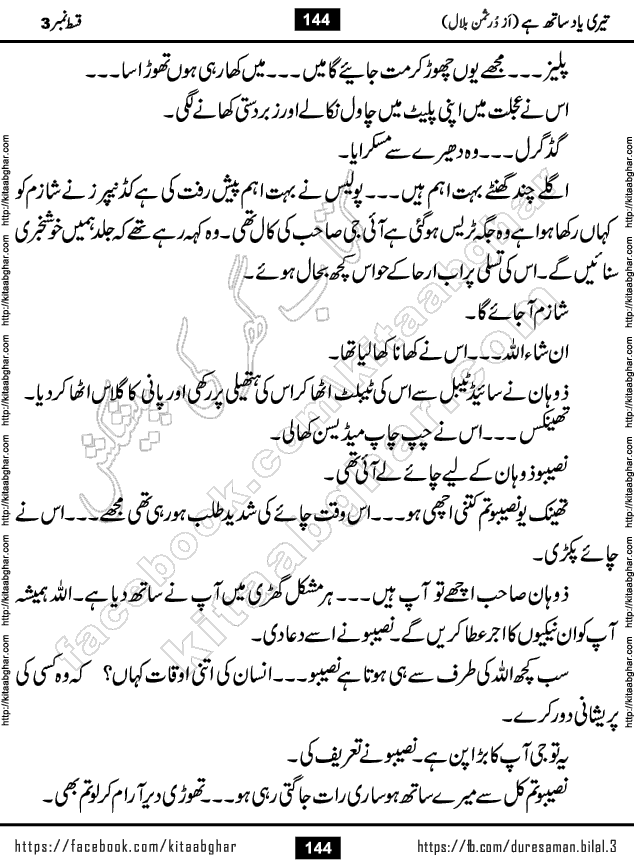 تیری یاد ساتھ ہے (از دُرِثمن بلال) 144 قسط نمبر 3
پلیز ۔۔۔ مجھے یوں چھوڑ کر مت جائیے گا میں ۔۔۔ میں کھا رہی ہوں تھوڑا سا ۔۔۔
اس نے عجلت میں اپنی پلیٹ میں چاول نکالے اور زبردستی کھانے لگی۔
گڈ گرل ۔۔۔ وہ دھیرے سے مسکرایا۔
اگلے چند گھنٹے بہت اہم ہیں ۔۔۔ پولیس نے بہت اہم پیش رفت کی ہے کڈنیپرز نے شازم کو
کہاں رکھا ہوا ہے وہ جگہ ٹریس ہو گئی ہے آئی جی صاحب کی کال تھی۔ وہ کہہ رہے تھے کہ جلد ہمیں خوشخبری
سنائیں گے۔ اس کی تسلی پر اب ارحا کے حواس کچھ بحال ہوئے۔
شازم آ جائے گا۔
ان شاء اللہ ۔۔۔ اس نے کھانا کھا لیا تھا۔
ذوہان نے سائیڈ ٹیبل سے اس کی ٹیبلٹ اٹھا کر اس کی ہتھیلی پر رکھی اور پانی کا گلاس اٹھا کر دیا۔
تھینکس ۔۔۔ اس نے چپ چاپ میڈیسن کھا لی۔
نصیبو ذوہان کے لیے چائے لے آئی تھی۔
تھینک یو نصیبو تم کتنی اچھی ہو ۔۔۔ اس وقت چائے کی شدید طلب ہو رہی تھی مجھے ۔۔۔ اس نے
چائے پکڑی۔
ذوہان صاحب اچھے تو آپ ہیں ۔۔۔ ہر مشکل گھڑی میں آپ نے ساتھ دیا ہے۔ اللہ ہمیشہ
آپ کو ان نیکیوں کا اجر عطا کریں گے۔ نصیبو نے اسے دعا دی۔
سب کچھ اللہ کی طرف سے ہی ہوتا ہے نصیبو ۔۔۔ انسان کی اتنی اوقات کہاں؟ کہ وہ کسی کی
پریشانی دور کرے۔
یہ تو جی آپ کا بڑا پن ہے۔ نصیبو نے تعریف کی۔
نصیبو تم کل سے میرے ساتھ ہو ساری رات جاگتی رہی ہو ۔۔۔ تھوڑی دیر آرام کر لو تم بھی۔
https://facebook.com/kitaabghar 144 https://fb.com/duresaman.bilal.3
http://kitaabghar.com http://kitaabghar.com http://kitaabghar.com http://kitaabghar.com http://kitaabghar.com http://kitaabghar.com
http://kitaabghar.com http://kitaabghar.com http://kitaabghar.com http://kitaabghar.com http://kitaabghar.com http://kitaabghar.com
کتاب گھر کی پیشکش
facebook.com/kitaabghar
kitaabghar.com